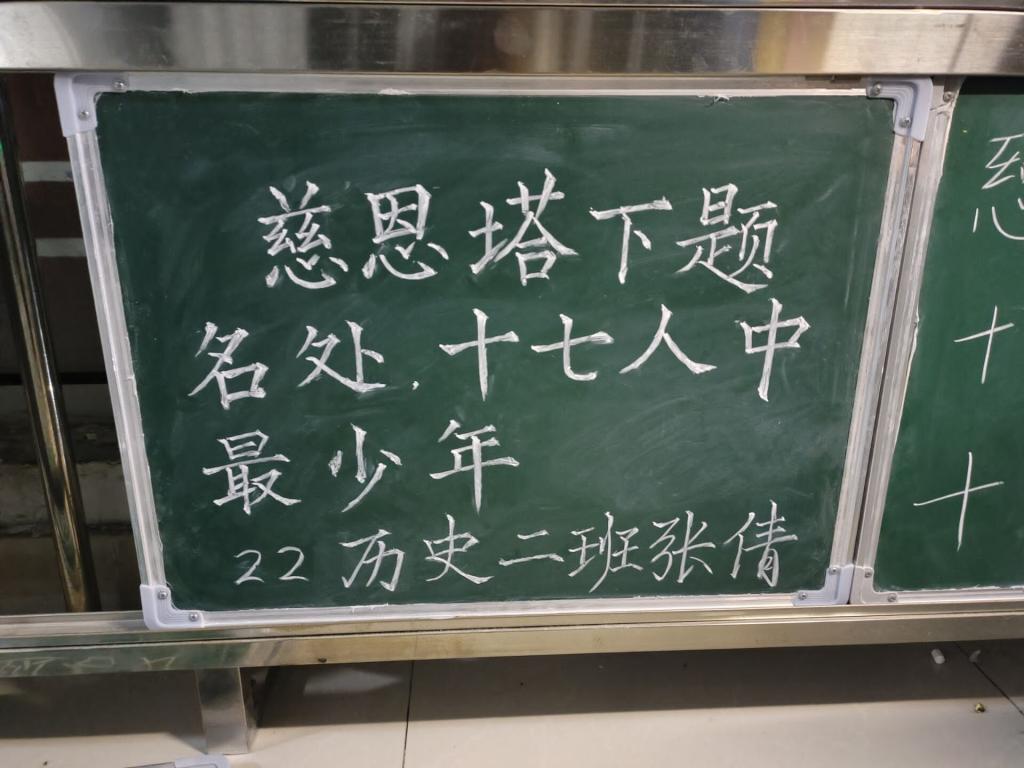 慈恩塔下题
名处,十七人中
最少年
22历史二班张倩
十
十